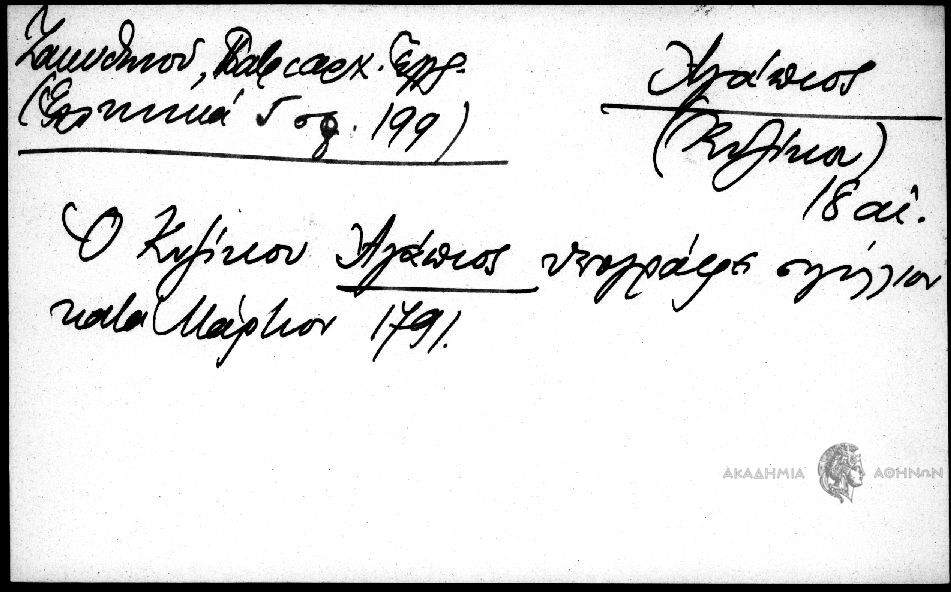 Ζακυθηνού, Πατριαρχ. Έγγρ.
(Ελληνικά 5 σ. 199)
Αγάπιος
(Κυζίκου)
18 αἰ.
Ὁ Κυζίκου Αγάπιος υπογράφει σιγίλλιον
κατά Μάρτιον 1791.
ΑΚΑΔΗΜΙΑ ΑΘΗΝΩΝ